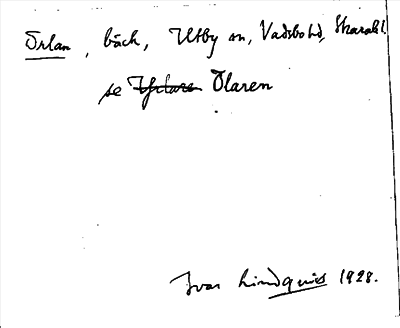 Örlan, bäck, Utby sn, Vadsbo hd, Skarab l.
se Ölaren
Ivar Lindquist 1928.